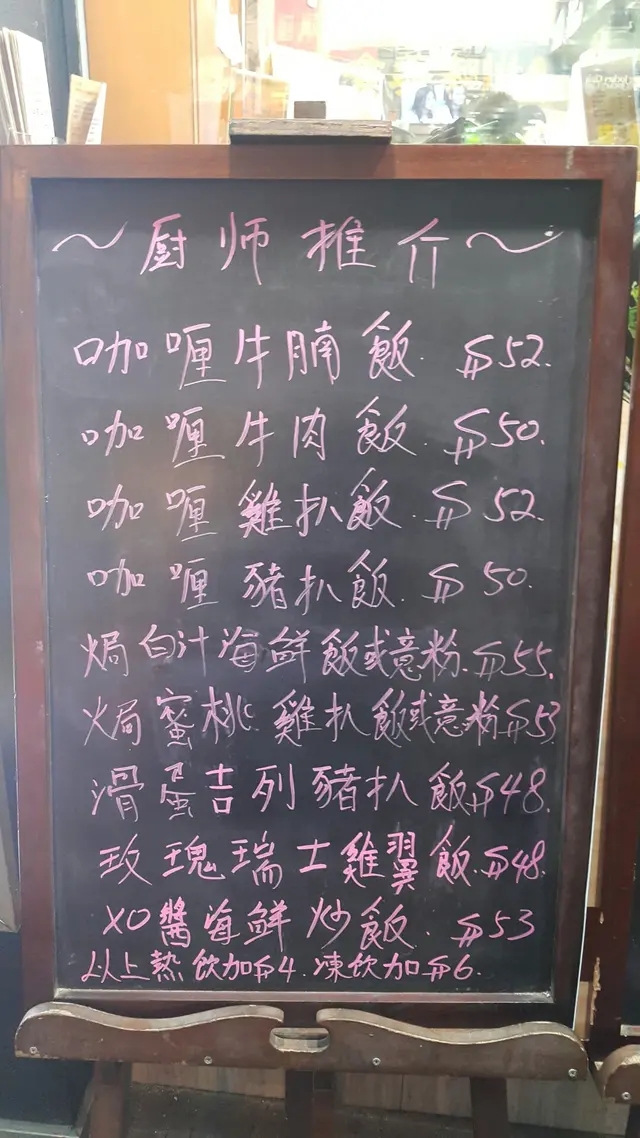 ～厨师推介～
咖喱牛腩飯. $52.
咖喱牛肉飯. $50.
咖喱雞扒飯. $52.
咖喱豬扒飯. $50.
焗白汁海鮮飯或意粉. $55.
焗蜜桃雞扒飯或意粉$53
滑蛋吉列豬扒飯.$48.
玫瑰瑞士雞翼飯.$48.
XO醬海鮮炒飯. $53
以上熱飲加$4. 凍飲加$6.